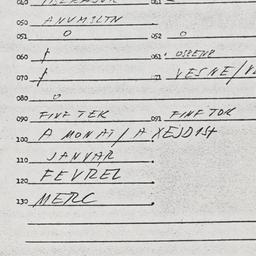 050 ANUMILTN
051 0 052 0
060 061
070 071 VESNE/V
080 0
090 FIVF TEK 091 FINF TOK
100 A MONAT/A XEJDIST
110 JANVAR
120 FEVREL
130 MERC